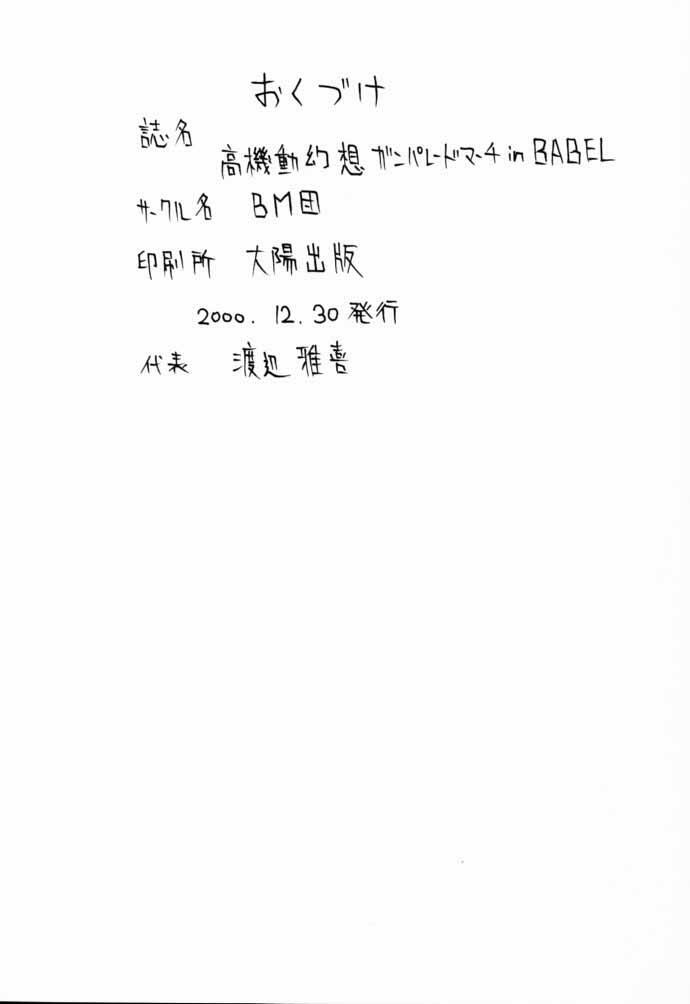 おくづけ
誌名 高機動幻想 ガンパレードマーチ in BABEL
サークル名 BM団
印刷所 大陽出版
2000. 12. 30 発行
代表 渡辺 雅喜